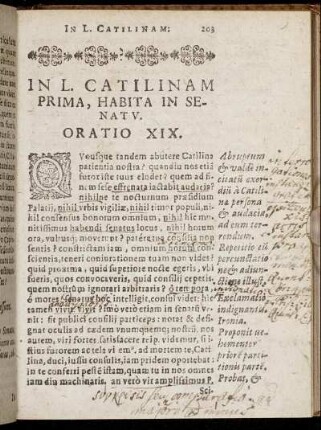 IN L. CATILINAM: 203
IN L. CATILINAM
PRIMA, HABITA IN SE-
NATV.
ORATIO XIX.
QVousque tandem abutere Catilina
patientia nostra? quamdiu nos etiā
furor iste tuus eludet? quem ad fi-
nem sese effrenata iactabit audacia?
nihilne te nocturnum præsidium
Palatii, nihil vrbis vigiliæ, nihil timor populi, ni-
hil consensus bonorum omnium, nihil hic mu-
nitissimus habendi senatus locus, nihil horum
ora, vultusq; mouerunt? patere tua consilia non
sentis? constrictam iam, omnium horum con-
scientia, teneri coniurationem tuam non vides?
quid proxima, quid superiore nocte egeris, vbi
fueris, quos conuocaueris, quid consilij ceperis,
quem nostrûm ignorari arbitraris? ô tempora,
ô mores! senatus hoc intelligit, consul videt: hic
tamen viuit. viuit? imò verò etiam in senatū ve-
nit: fit publici consilij particeps: notat & desig-
nat oculis ad cædem vnumquemq; nostrū. nos
autem, viri fortes satisfacere reip. videmur, si
istius furorem ac tela vitemus. ad mortem te, Catili-
na, duci, iussu consulis, iam pridem oportebat: in
te conferri pestē istam, quam tu in nos omnes
iam diu machinaris. an verò vir amplissimus P.
Sci-
Abruptum
& valdè in-
citatū exor-
diū à Catili-
na persona
& audacia
ad eum ter-
rendum.
Repetitio est
percunctatio
nes & adiun-
ctione illustr.
Exclamatio
indignantis.
Ironia.
Proponit ve-
hementer
priorē parti-
tionis partē.
Probat, &